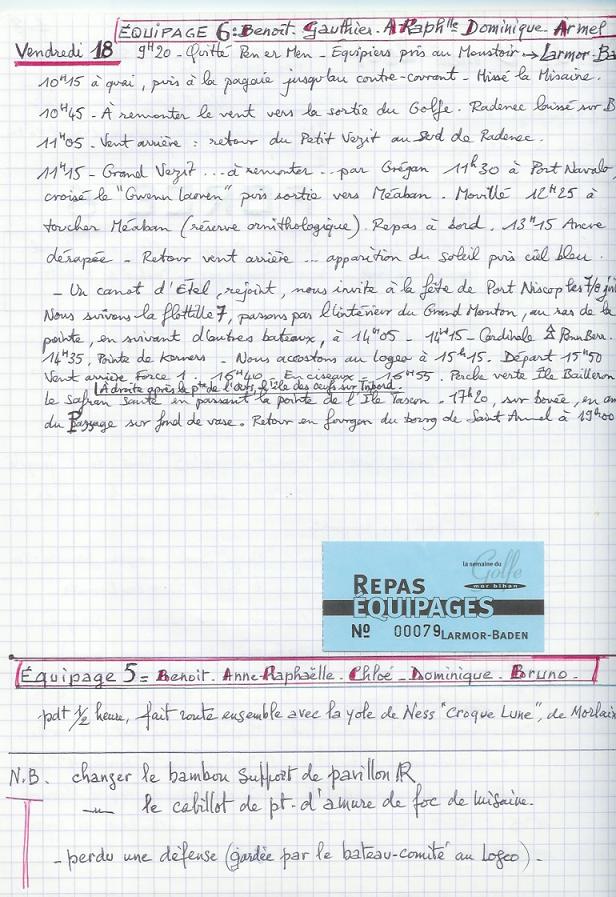 ÉQUIPAGE 6: Benoît. Gauthier. A Raphlle Dominique. Armel
Vendredi 18 9H20 - Quitté Pen er Men - Equipiers pris au Moustoir → Larmor-Ba
10H15 à quai, puis à la pagaie jusqu'au contre-courant - Hissé la Misaine.
10H45 - À remonter le vent vers la sortie du Golfe. Radenec laissé sur B
11H05. Vent arrière : retour du Petit Vezit au Sud de Radenec.
11H15 - Grand Vezit ... à remonter .. par Grégan 11H30 à Port Navalo
croisé le "Gwenn laouen" puis sortie vers Méaban. Mouillé 12H25 à
toucher Méaban (réserve ornithologique). Repas à bord. 13H15 Ancre
dérapée - Retour vent arrière ... apparition du soleil puis ciel bleu.
- Un canot d'Etel, rejoint, nous invite à la fête de Port Niscop les 7/8
Nous suivons la flottille 7, passons par l'intérieur du Grand Mouton, au ras de la
pointe, en suivant d'autres bateaux, à 14H05 - 14H15 - Cardinale
14H35. Pointe de - Nous accostons au Logeo à 15H15. Départ 15H50
Vent arrière Force 1. 16H40. En ciseaux - 16H55. Perche verte Île Bailleron
(A droite après la pte de l'Ours, l'isle des oeufs sur Tribord.
le safran sauté en passant la pointe de l'Ile Tascon. 17H20, sur bouée, en
du Passage sur fond de vase. Retour en fourgon du bourg de Saint Armel à 19H00
la semaine du
Golfe
morbihan
REPAS
ÉQUIPAGES
No 00079 LARMOR-BADEN
Équipage 5 = Benoit. Anne-Raphaëlle. Chloé - Dominique. Bruno.
pdt 1/2 heure, fait route ensemble avec la yole de Ness "Croque Lune", de Morlaix
N.B. changer le bambou support de pavillon AR
—"— le cabillot de pt. d'amure de foc de misaine.
- perdu une défense (gardée par le bateau-comité au Logeo) -